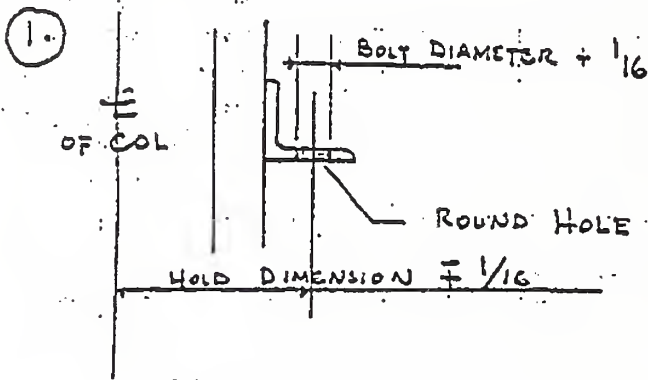 1.
BOLT DIAMETER + 1/16
OF COL
ROUND HOLE
HOLD DIMENSION ∓ 1/16